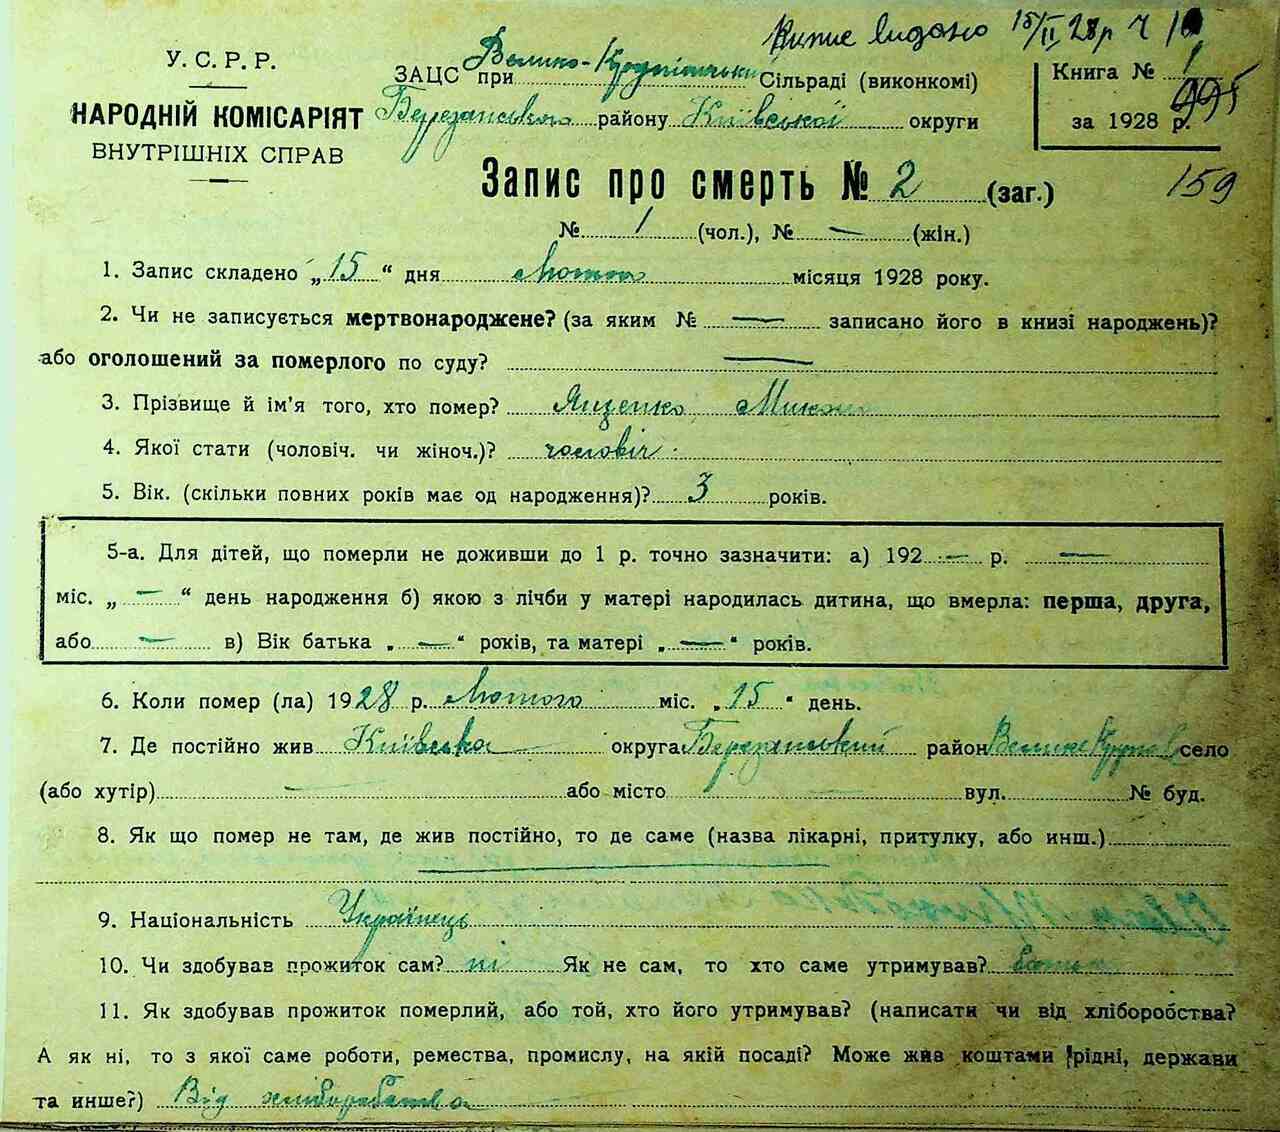 Випис видано 15/II 28 р Ч 1
У. С. Р. Р.
НАРОДНІЙ КОМІСАРІЯТ
ВНУТРІШНІХ СПРАВ
ЗАЦС при Велико-Крупільський Сільраді (виконкомі)
Березанського району Київської округи
Книга № 1
за 1928 р.
159
Запис про смерть № 2 (заг.)
№ 1 (чол.), № — (жін.)
1. Запис складено „15“ дня Лютого місяця 1928 року.
2. Чи не записується мертвонароджене? (за яким № — записано його в книзі народжень)?
або оголошений за померлого по суду? —
3. Прізвище й ім'я того, хто помер? Ященко Микола
4. Якої стати (чоловіч. чи жіноч.)? чоловіч.
5. Вік. (скільки повних років має од народження)? 3 років.
5-а. Для дітей, що померли не доживши до 1 р. точно зазначити: а) 192 — р. —
міс. „ — “ день народження б) якою з лічби у матері народилась дитина, що вмерла: перша, друга,
або — в) Вік батька „ — “ років, та матері „ — “ років.
6. Коли помер (ла) 1928 р. Лютого міс. „15“ день.
7. Де постійно жив Київська округа Березанський район Велике Крупол село
(або хутір) — або місто — вул. № буд.
8. Як що помер не там, де жив постійно, то де саме (назва лікарні, притулку, або инш.)
—
9. Національність Українець
10. Чи здобував прожиток сам? ні Як не сам, то хто саме утримував? батько
11. Як здобував прожиток померлий, або той, хто його утримував? (написати чи від хліборобства?
А як ні, то з якої саме роботи, ремества, промислу, на якій посаді? Може жив коштами рідні, держави
та инше?) Від хліборобства